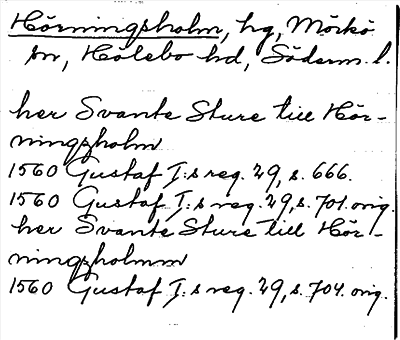 Hörningsholm, hg, Mörkö
sn, Hölebo hd, Söderm. l.
her Svante Sture till Hör-
ningzholm
1560 Gustaf I:s reg. 29, s. 666.
1560 Gustaf I:s reg. 29, s. 701. orig.
her Svante Sture till Hör-
ningzholmm
1560 Gustaf I:s reg. 29, s. 704. orig.